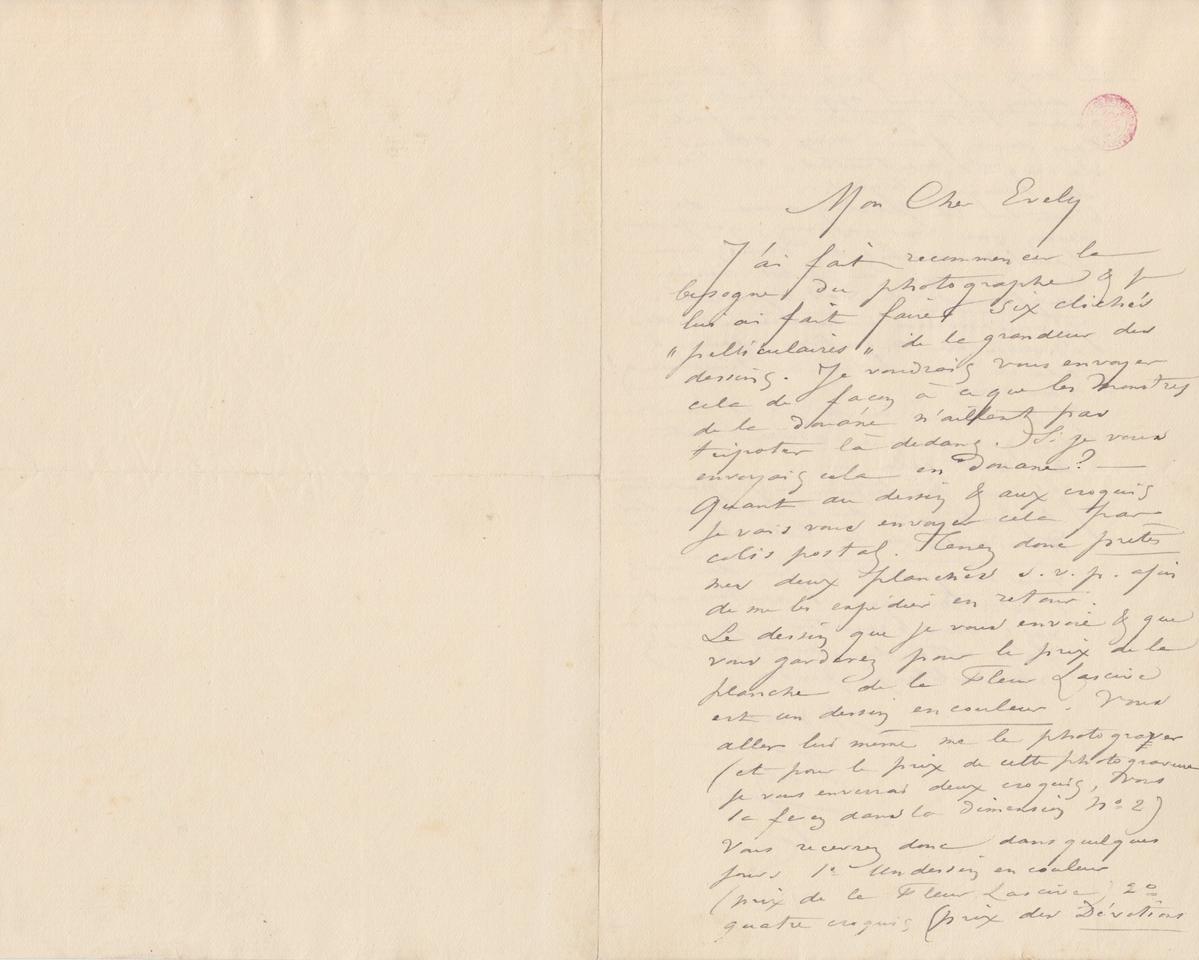 Mon Cher Evely
J'ai fait recommencer la
besogne du photographe & je
lui ai fait faire six clichés
"pelliculaires" de la grandeur des
dessins. Je voudrais vous envoyer
cela de façon à ce que les monstres
de la douane n'aillent pas
tripoter là dedans. Si je vous
envoyais cela en douane? —
Quant au dessin & aux croquis
je vais vous envoyer cela par
colis postal. Tenez donc prêtes
mes deux planches s.v.p. afin
de me les expédier en retour.
Le dessin que je vous envoie & que
vous garderez pour le prix de la
planche de la Fleur Lascive
est un dessin en couleur. Vous
allez lui même me le photograver
(et pour le prix de cette photogravure
je vous enverrai deux croquis, vous
la ferez dans la dimension no 2)
Vous recevrez donc dans quelques
jours 1o Un dessin en couleur
(prix de la Fleur Lascive) 2o
quatre croquis (prix des Dévotions